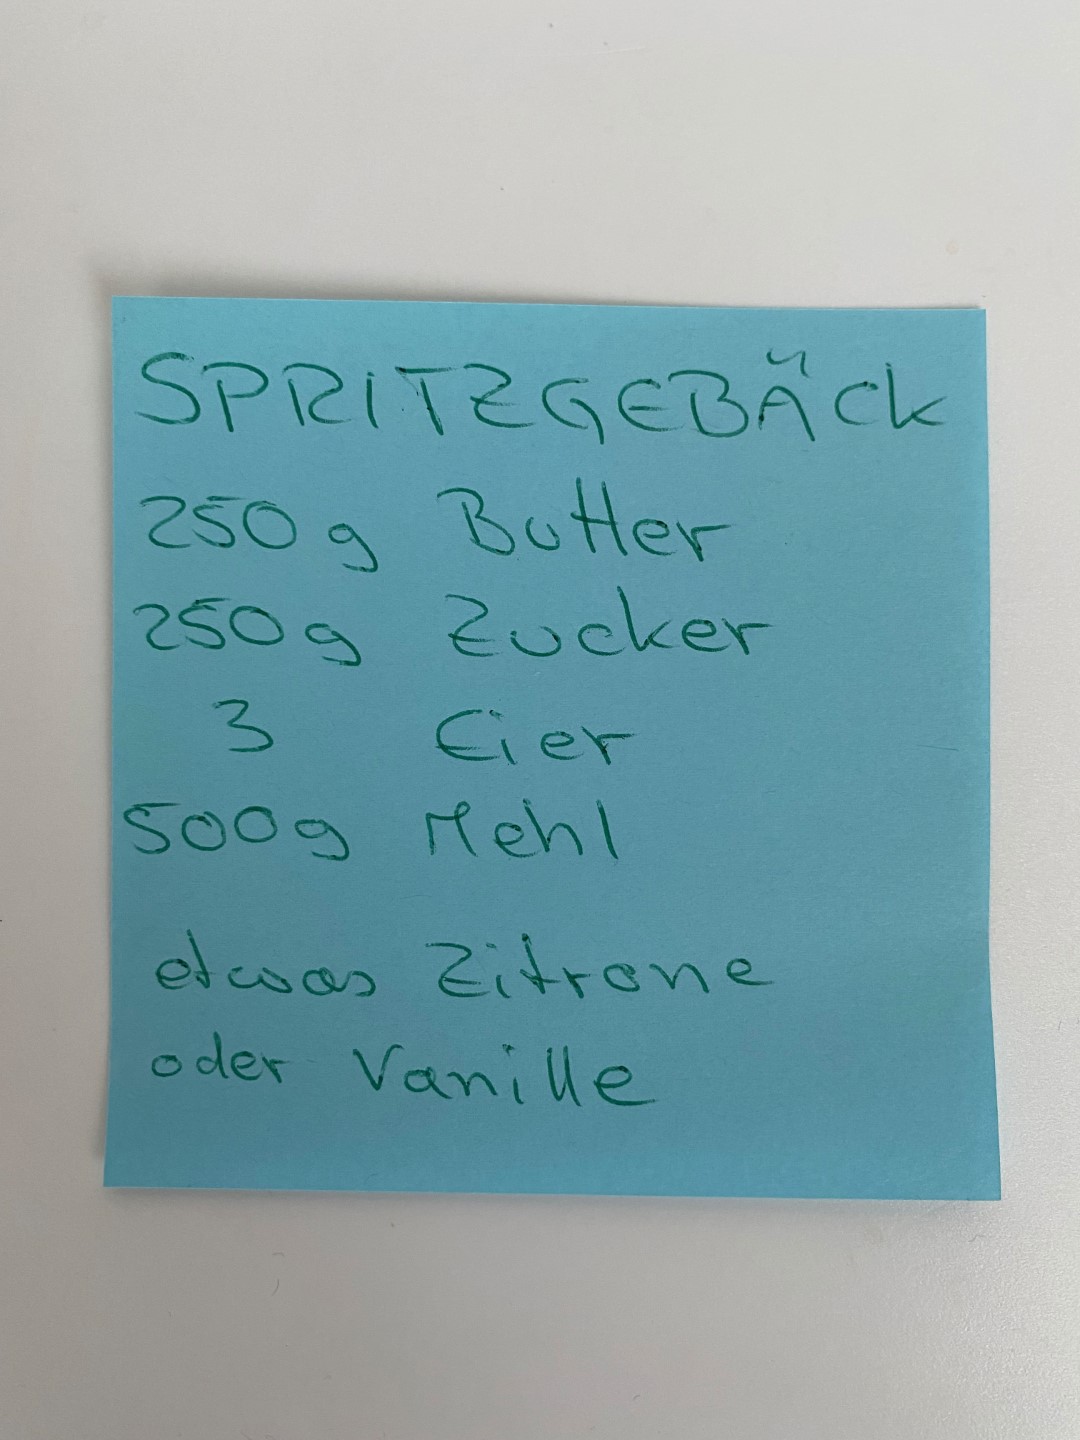 SPRITZGEBÄCK
250g Butter
250g Zucker
3 Eier
500g Mehl
etwas Zitrone
oder Vanille